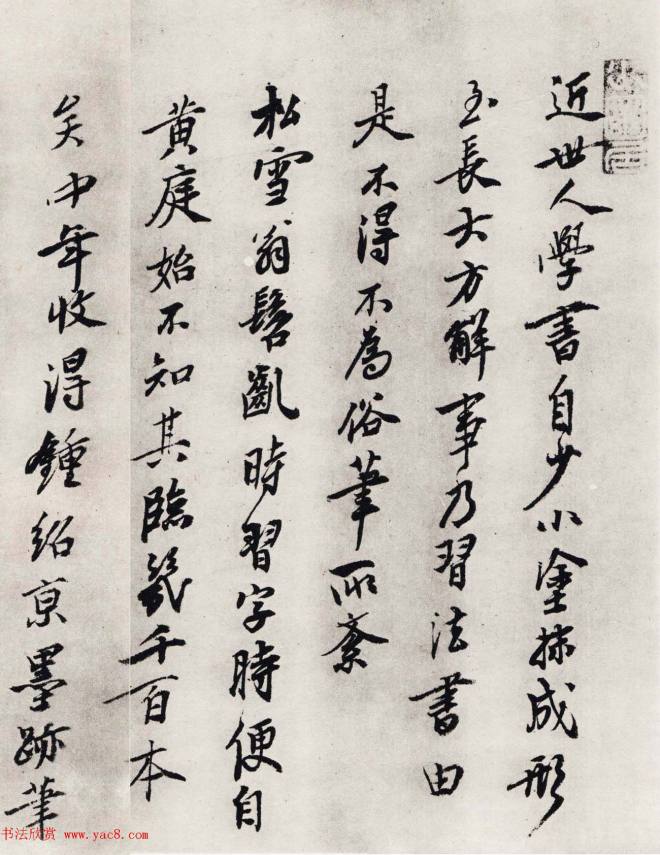 近世人學書自少小塗抹成形
至長大方解事乃習法書由
是不得不為俗筆所紊
松雪翁髫齔時習字時便自
黃庭始不知其臨幾千百本
矣中年收得鍾紹京墨跡筆
书法欣赏 www.yac8.com